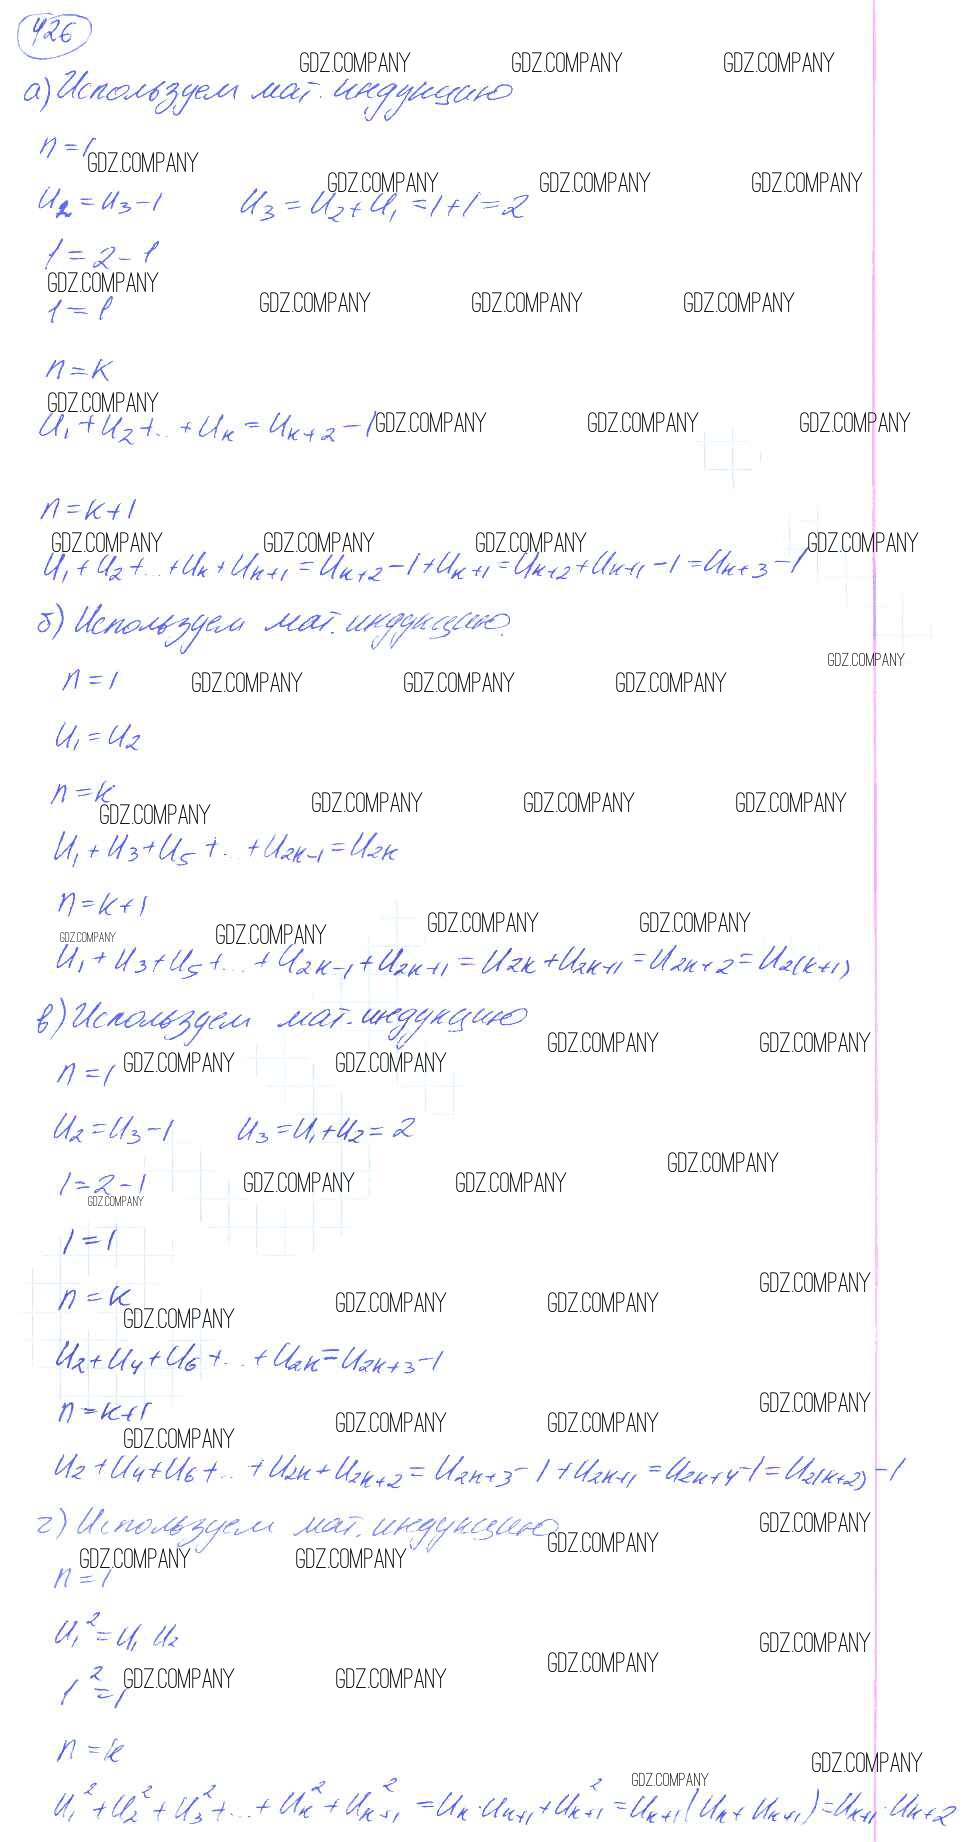 426
GDZ.COMPANY GDZ.COMPANY GDZ.COMPANY
а) Используем мат. индукцию
n = 1
GDZ.COMPANY
GDZ.COMPANY GDZ.COMPANY GDZ.COMPANY
U₂ = U₃ - 1 U₃ = U₂ + U₁ = 1 + 1 = 2
1 = 2 - 1
GDZ.COMPANY
GDZ.COMPANY GDZ.COMPANY GDZ.COMPANY
1 = 1
n = k
GDZ.COMPANY
U₁ + U₂ + ... + Uₖ = Uₖ₊₂ - 1 GDZ.COMPANY GDZ.COMPANY GDZ.COMPANY
n = k + 1
GDZ.COMPANY GDZ.COMPANY GDZ.COMPANY GDZ.COMPANY
U₁ + U₂ + ... + Uₖ + Uₖ₊₁ = Uₖ₊₂ - 1 + Uₖ₊₁ = Uₖ₊₂ + Uₖ₊₁ - 1 = Uₖ₊₃ - 1
б) Используем мат. индукцию.
GDZ.COMPANY
n = 1 GDZ.COMPANY GDZ.COMPANY GDZ.COMPANY
U₁ = U₂
n = k
GDZ.COMPANY GDZ.COMPANY GDZ.COMPANY GDZ.COMPANY
U₁ + U₃ + U₅ + ... + U₂ₖ₋₁ = U₂ₖ
n = k + 1
GDZ.COMPANY GDZ.COMPANY GDZ.COMPANY GDZ.COMPANY
U₁ + U₃ + U₅ + ... + U₂ₖ₋₁ + U₂ₖ₊₁ = U₂ₖ + U₂ₖ₊₁ = U₂ₖ₊₂ = U₂₍ₖ₊₁₎
в) Используем мат. индукцию
GDZ.COMPANY GDZ.COMPANY
n = 1 GDZ.COMPANY GDZ.COMPANY
U₂ = U₃ - 1 U₃ = U₁ + U₂ = 2
GDZ.COMPANY
1 = 2 - 1 GDZ.COMPANY GDZ.COMPANY
GDZ.COMPANY
1 = 1
GDZ.COMPANY
n = k GDZ.COMPANY GDZ.COMPANY
GDZ.COMPANY
U₂ + U₄ + U₆ + ... + U₂ₖ = U₂ₖ₊₃ - 1
GDZ.COMPANY
n = k + 1 GDZ.COMPANY GDZ.COMPANY
GDZ.COMPANY
U₂ + U₄ + U₆ + ... + U₂ₖ + U₂ₖ₊₂ = U₂ₖ₊₃ - 1 + U₂ₖ₊₁ = U₂ₖ₊₄ - 1 = U₂₍ₖ₊₂₎ - 1
г) Используем мат. индукцию
GDZ.COMPANY GDZ.COMPANY
GDZ.COMPANY GDZ.COMPANY
n = 1
U₁² = U₁ U₂
GDZ.COMPANY GDZ.COMPANY
1² = 1 GDZ.COMPANY GDZ.COMPANY
n = k
GDZ.COMPANY GDZ.COMPANY
U₁² + U₂² + U₃² + ... + Uₖ² + Uₖ₊₁² = Uₖ · Uₖ₊₁ + Uₖ₊₁² = Uₖ₊₁ (Uₖ + Uₖ₊₁) = Uₖ₊₁ · Uₖ₊₂